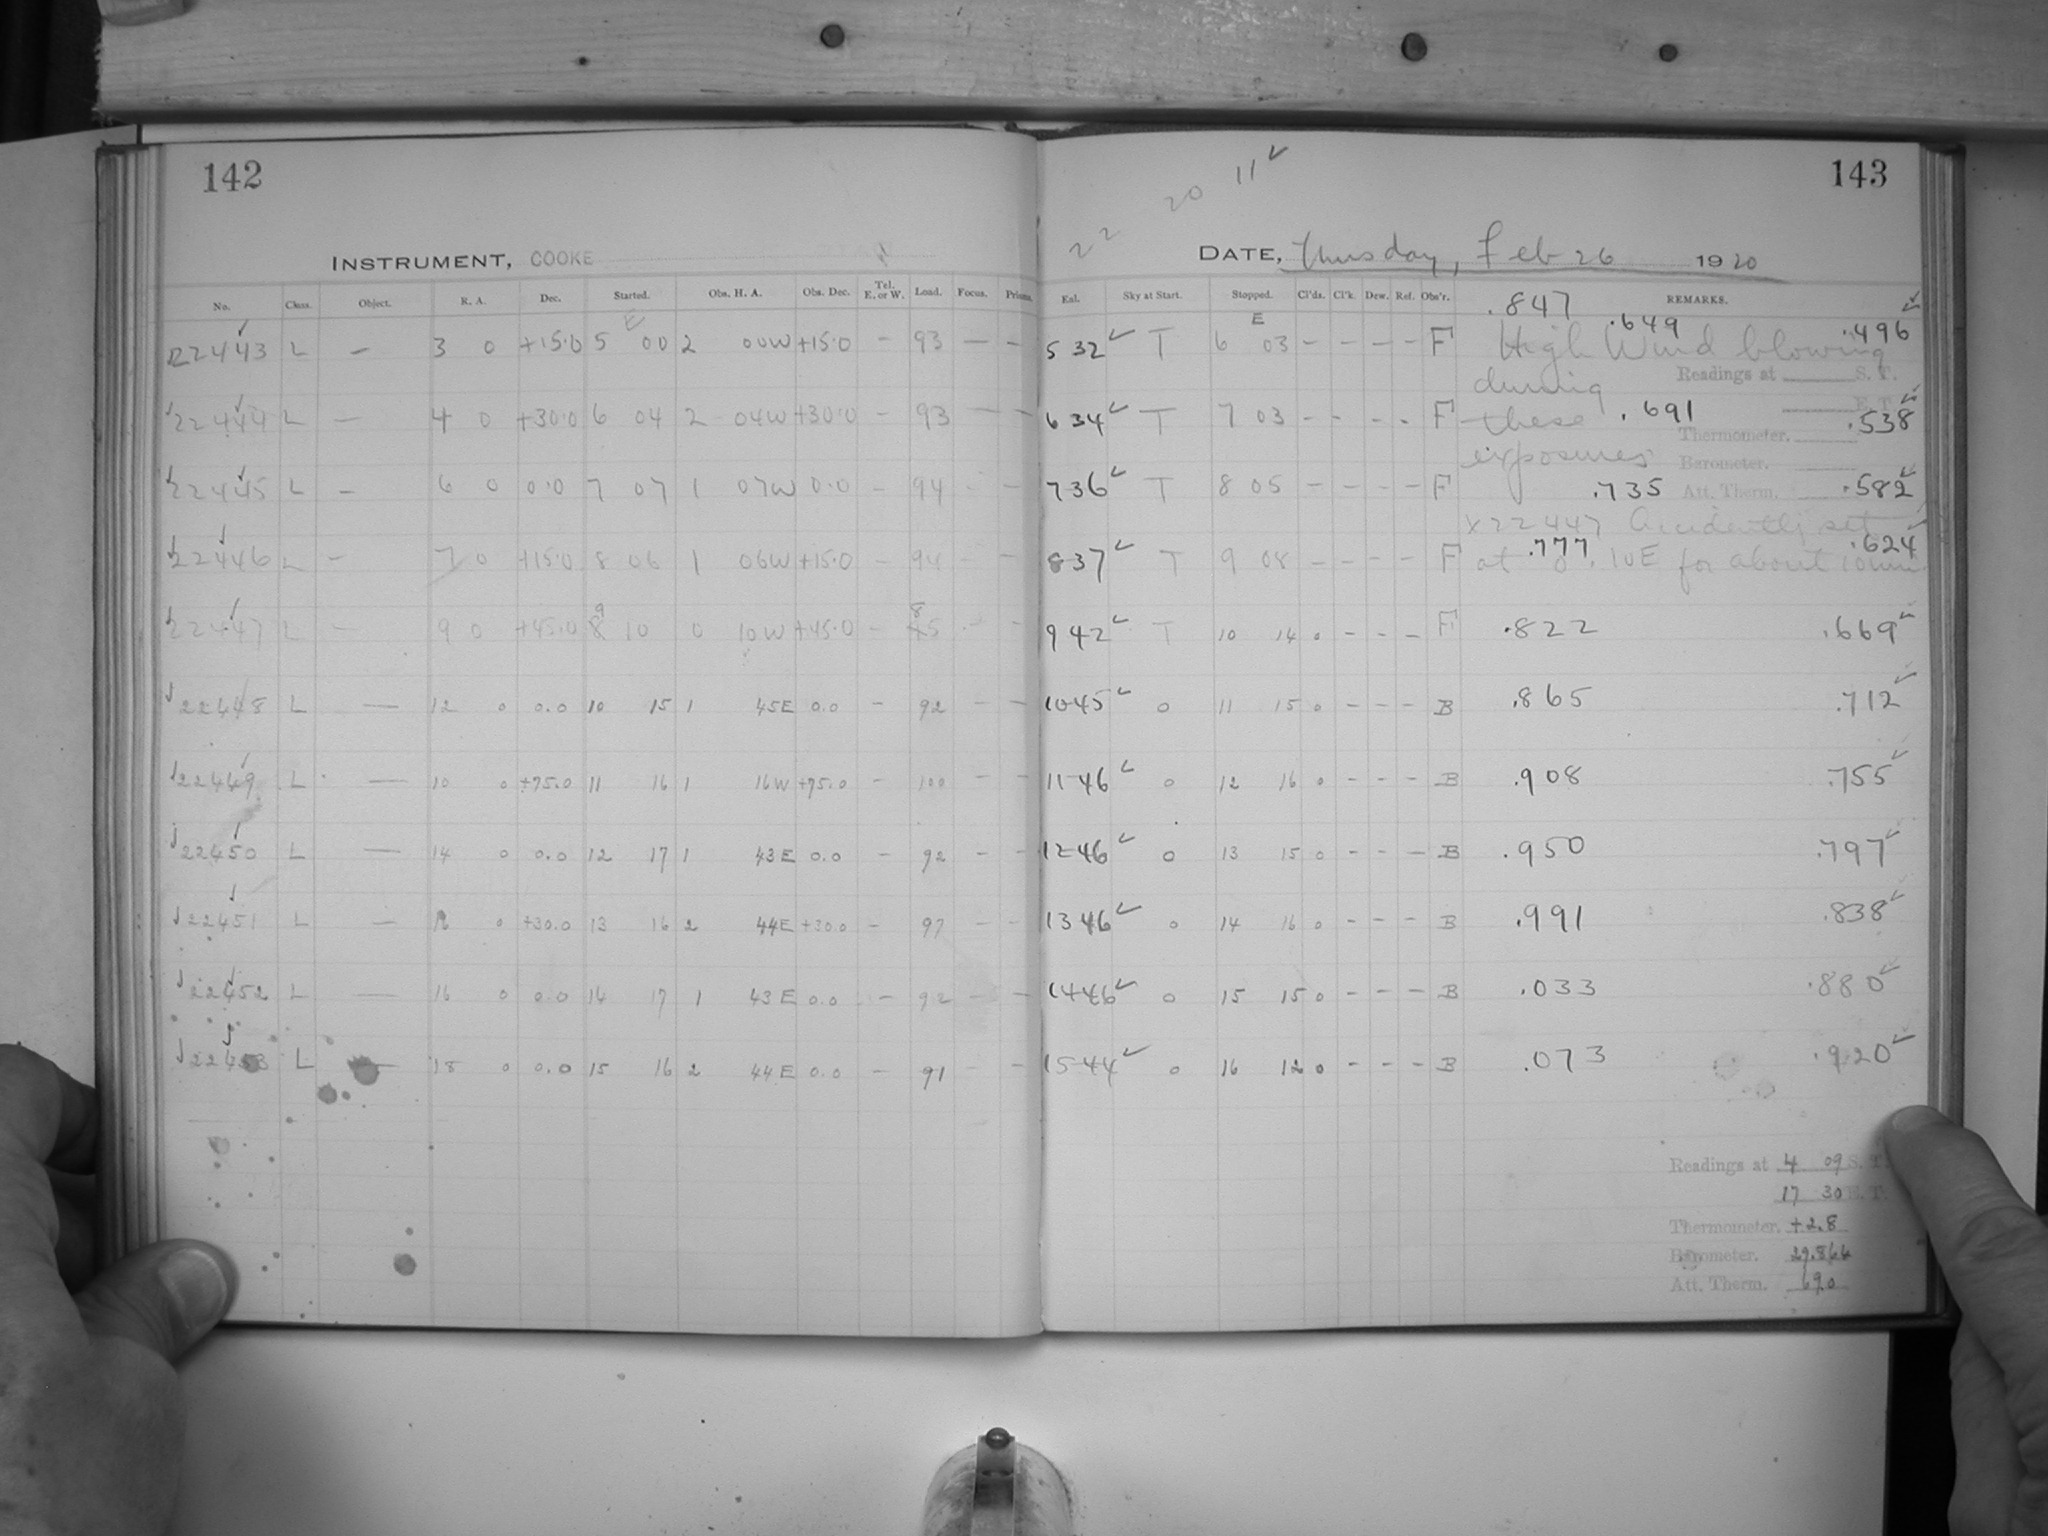 142
INSTRUMENT, COOKE
No. Class. Object. R. A. Dec. Started. Obs. H. A. Obs. Dec. Tel. E. or W. Load. Focus. Prisms.
E
22443 L — 3 0 +15.0 5 00 2 00W +15.0 – 93 — –
22444 L — 4 0 +30.0 6 04 2 04W +30.0 – 93 — –
22445 L – 6 0 0.0 7 07 1 07W 0.0 – 94 – –
22446 L – 7 0 +15.0 8 06 1 06W +15.0 – 94 – –
22447 L – 9 0 +45.0 9 10 0 10W +45.0 – 85 – –
22448 L — 12 0 0.0 10 15 1 45E 0.0 – 92 – –
22449 L — 10 0 +75.0 11 16 1 16W +75.0 – 100 – –
22450 L — 14 0 0.0 12 17 1 43E 0.0 – 92 – –
22451 L — 0 +30.0 13 16 2 44E +30.0 – 97 – –
22452 L — 16 0 0.0 14 17 1 43E 0.0 – 92 – –
22453 L — 18 0 0.0 15 16 2 44E 0.0 – 91 – –
143
22 20 11 ✓
DATE, Thursday, Feb 26 1920
Exl. Sky at Start. Stopped. Cl'ds. Cl'k. Dew. Ref. Obs'r. REMARKS.
E .847 .649 .496 ✓
532 ✓ T 6 03 – – – – F High Wind blowing
during Readings at S. T.
E. T.
634 ✓ T 7 03 – – – - F these .691 .538 ✓
Thermometer.
exposures Barometer.
736 ✓ T 8 05 – – – – F .735 Att. Therm. .582 ✓
x22447 Accidently set
837 ✓ T 9 08 – – – – F at 0 .777 10E for about 10min .624 ✓
942 ✓ T 10 14 0 – – – F .822 .669 ✓
1045 ✓ 0 11 15 0 – – – B .865 .712 ✓
1146 ✓ 0 12 16 0 – – – B .908 .755 ✓
1246 ✓ 0 13 15 0 – – – B .950 .797 ✓
1346 ✓ 0 14 16 0 – – – B .991 .838 ✓
1446 ✓ 0 15 15 0 – – – B .033 .880 ✓
1544 ✓ 0 16 12 0 – – – B .073 .920 ✓
Readings at 4 09 S. T.
17 30 E. T.
Thermometer. +2.8
Barometer. 29.866
Att. Therm. 69.0